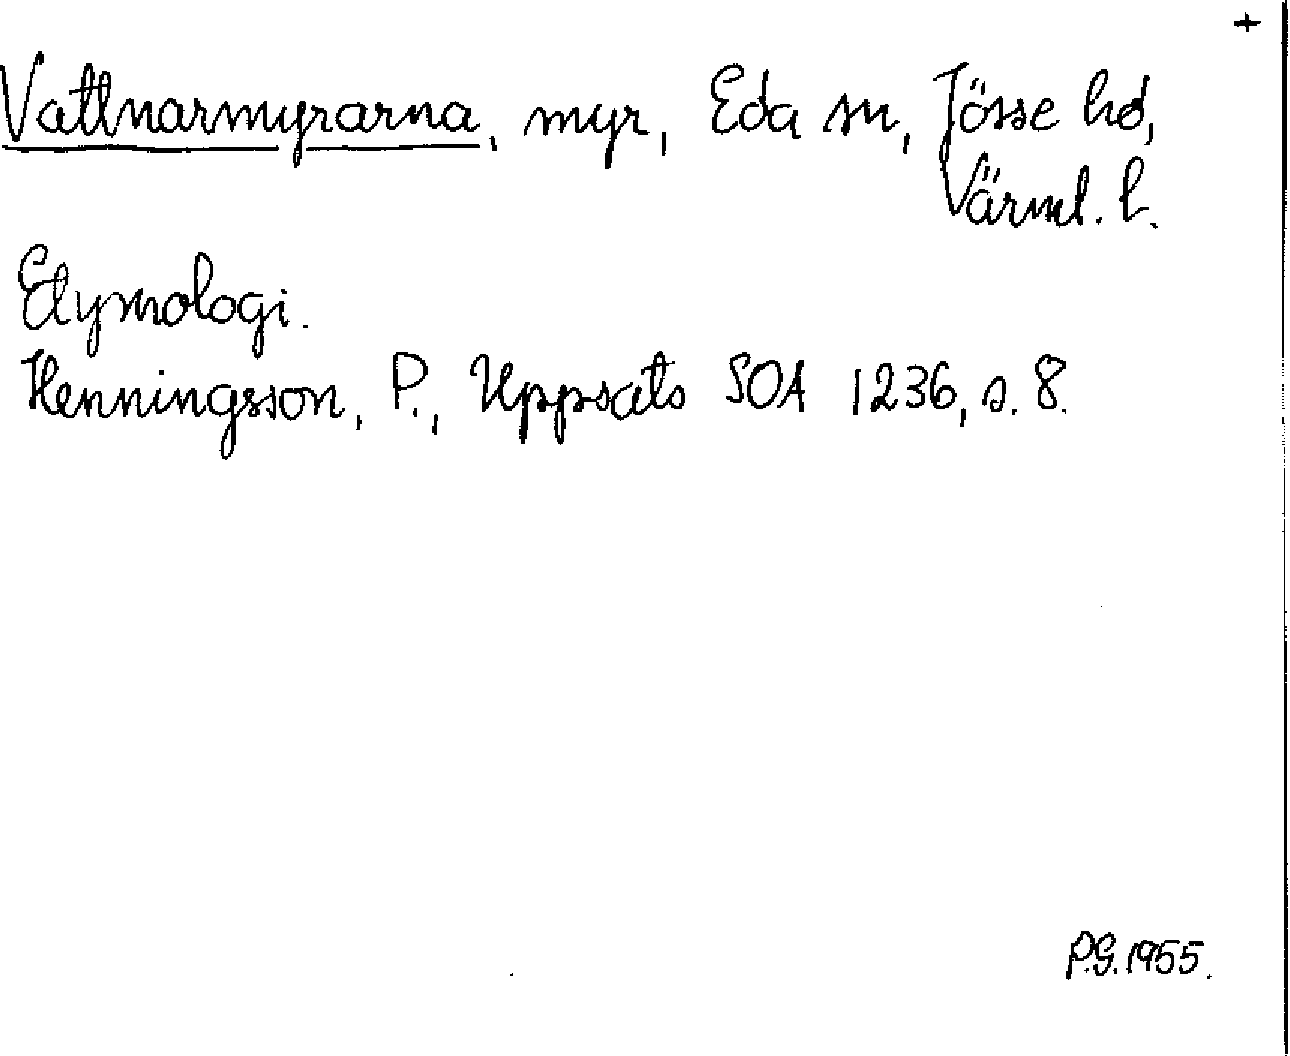 +
Vattnarmyrarna, myr, Eda sn, Jösse hd,
Värml. l.
Etymologi.
Henningsson, P., Uppsats SOA 1236, s. 8.
P.G. 1955.